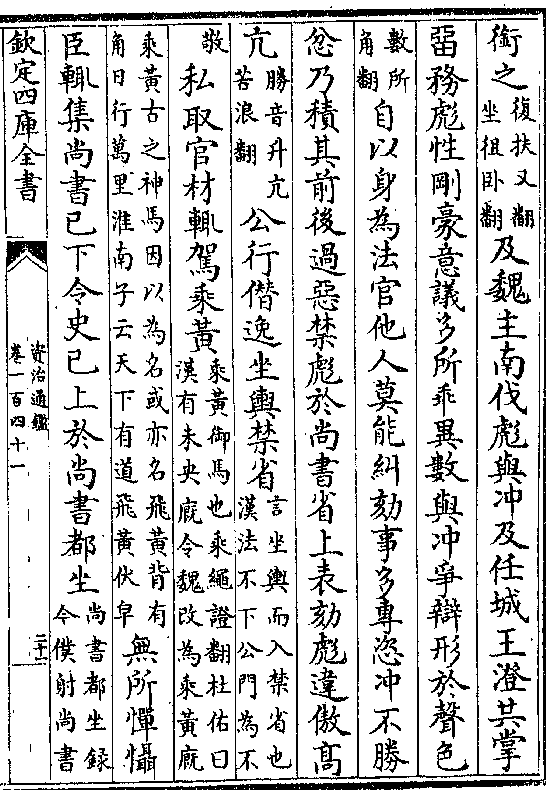 銜之復扶又翻坐徂卧翻及魏主南伐彪與冲及任城王澄共掌
留務彪性剛豪意議多所乖異數與冲爭辯形於聲色
數所角翻自以身為法官他人莫能糾劾事多專恣冲不勝
忿乃積其前後過惡禁彪於尚書省上表劾彪違傲髙
亢勝音升亢苦浪翻公行僭逸坐輿禁省言坐輿而入禁省也漢法不下公門為不
敬私取官材輒駕乘黄乘黄御馬也乘繩證翻杜佑曰漢有未央廐令魏改為乘黄廐
乘黄古之神馬因以為名或亦名飛黄背有角日行萬里淮南子云天下有道飛黄伏皁無所憚懾
臣輒集尚書已下令史已上於尚書都坐尚書都坐錄令僕射尚書
欽定四庫全書
資治通鑑
卷一百四十一
二十一